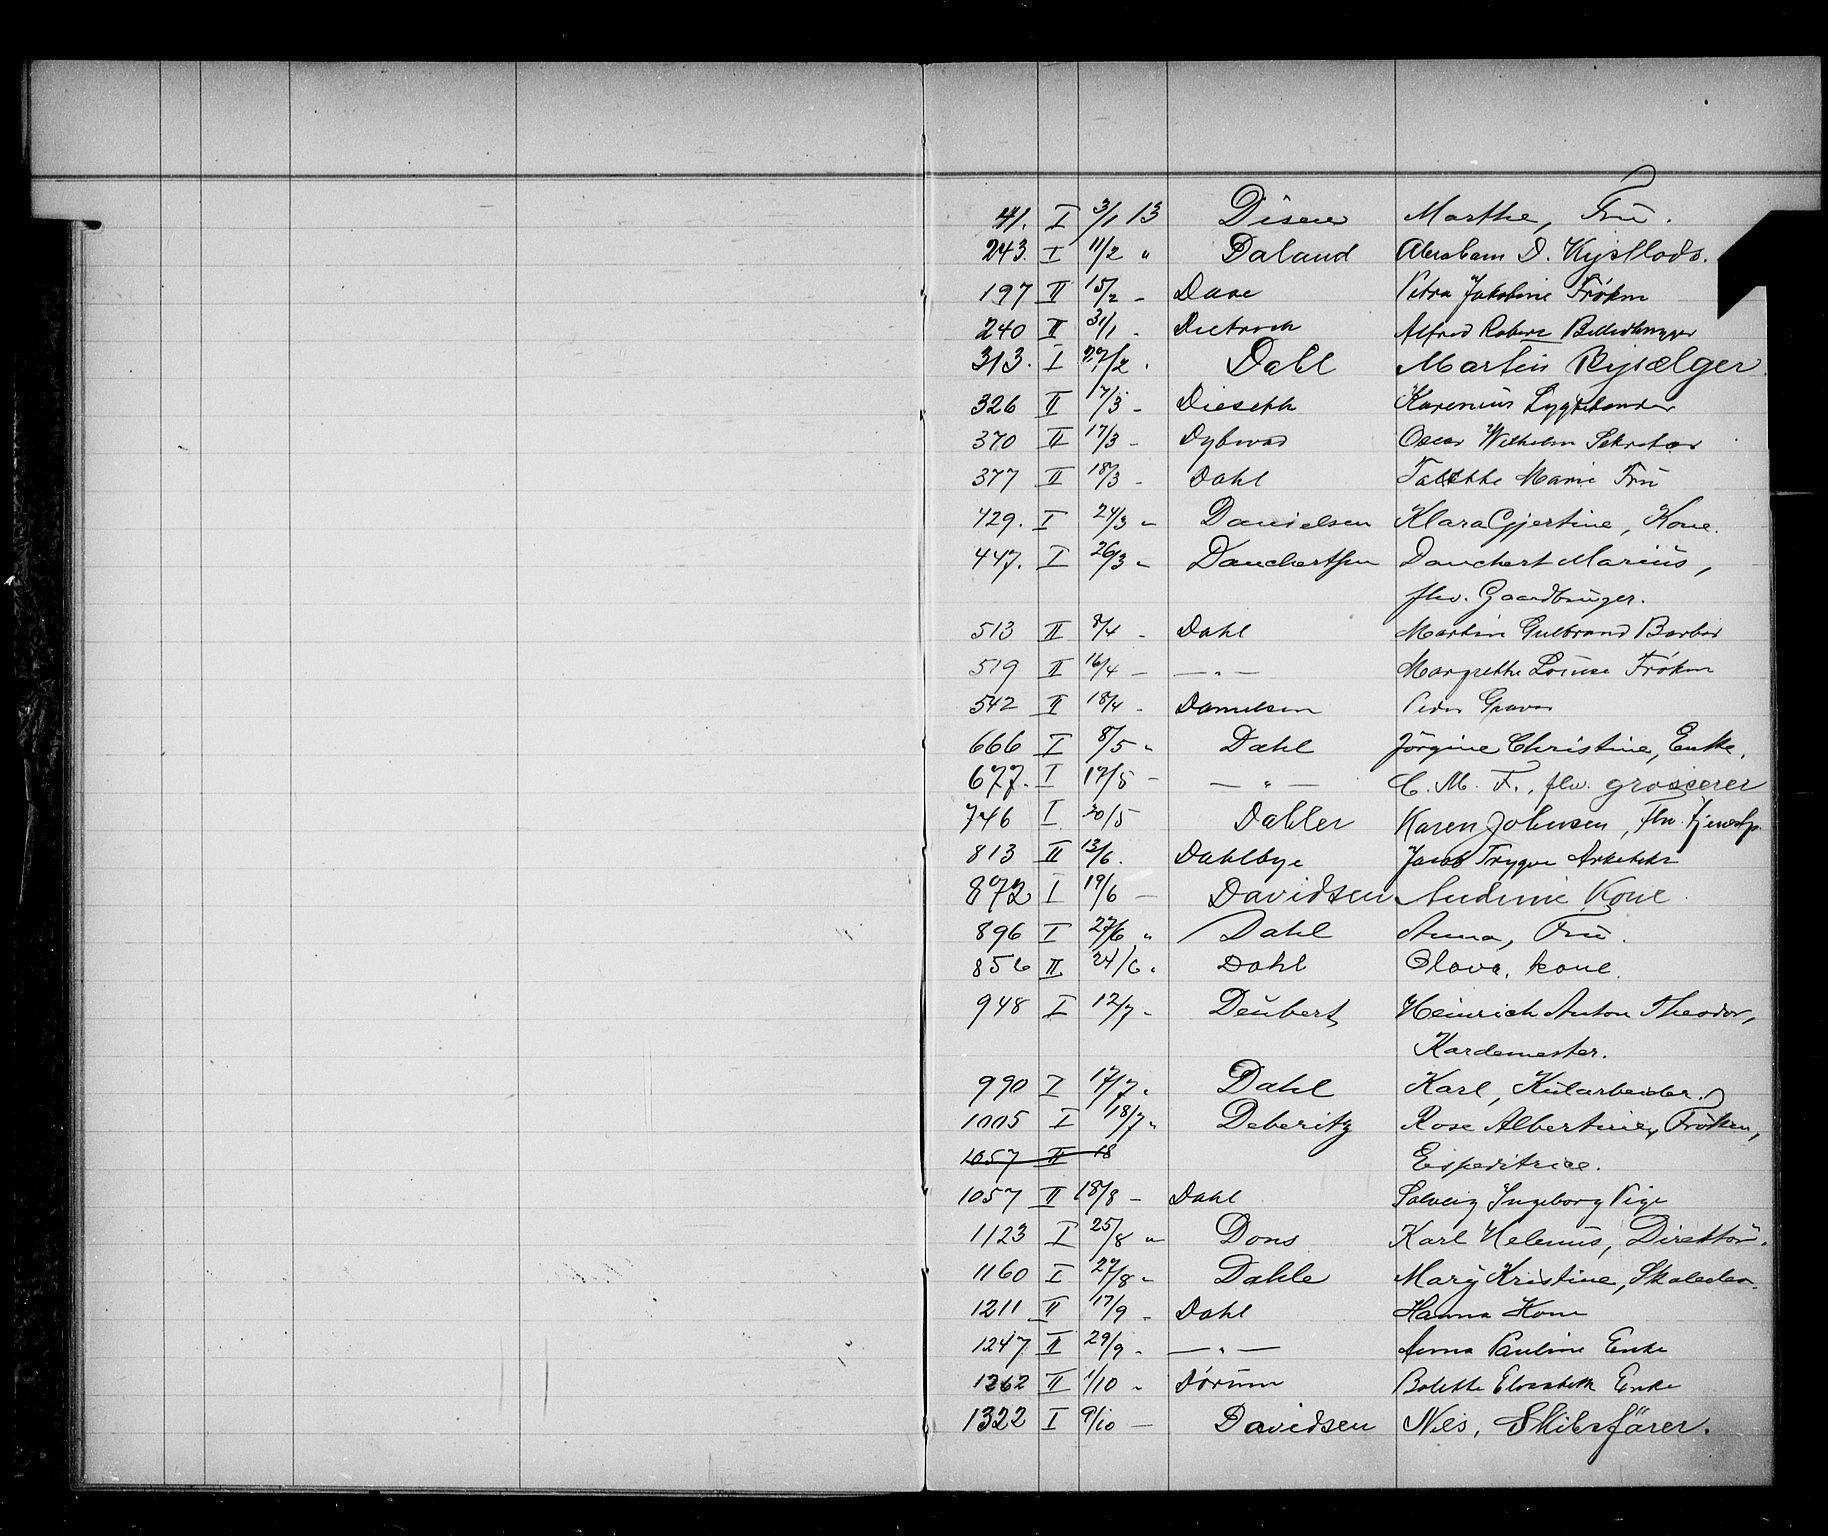 41. I 3/1 13 Disen Marthe, Fru.
243. I 11/2 " Daland Abraham D. Kystlods.
197 II 15/2 - Petra Jakobine Frøken
240 II 31/1 - Alfred Robert Billedhugger
313. I 27/2 . Dahl Martin Bysælger.
326 II 17/3 - Karenius
370 II 17/3 - Dybwad Oscar Wilhelm Sekretær
377 II 18/3 - Dahl Marie Fru
429. I 24/3 " Danielsen Klara Gjertine, Kone.
447. I 26/3 " Danchertsen Danchert Marius,
flw. Gaardbruger.
513 II 8/4 - Dahl Martin Gulbrand Barber
519 II 16/4 - — " — Margrethe Louise Frøken
542 II 18/4 - Danielsen Peder Graver
666 I 8/5 " Dahl Jørgine Christine, Enke.
677. I 17/5 - — " — C. M. F., flw. grosserer
746 I 20/5 Dahler Karen Johnsen,
813 II 13/6. Dahlbye Jacob Trygve Arkitekt
872 I 19/6 - Davidsen Andrine Kone
896 I 27/6 " Dahl Anna, Fru.
856 II 24/6. Dahl Olava, kone.
948 I 12/7 - Deubert Heinrich Anton Theodor,
Kardemester.
990 I 17/7 " Dahl Karl, Kularbeider.
1005 I 18/7 " Deberitz Rose Albertine, Frøken,
1057 II 18 Expeditrice.
1057 II 18/8 - Dahl Solveig Ingeborg Pige
1123 I 25/8 " Dons Karl Helenus, Direktør.
1160 I 27/8 " Dahle Mary Kristine,
1211 II 17/9 - Dahl Hanna Kone
1247 II 29/9 - — " — Anna Pauline Enke
1262 II 1/10 - Dørum Bolette Elisabeth Enke
1322 I 9/10 — Davidsen Nils, Skibsfører.